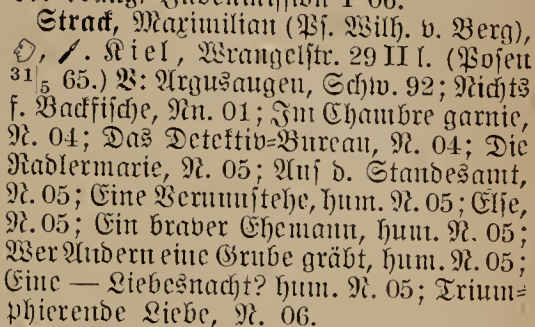 Strack, Maximilian (Ps. Wilh. v. Berg),
Kiel, Wrangelstr. 29 II l. (Posen
31/5 65.) V: Argusaugen, Schw. 92; Nichts
f. Backfische, Nn. 01; Im Chambre garnie,
N. 04; Das Detektiv-Bureau, N. 04; Die
Radlermarie, N. 05; Auf d. Standesamt,
N. 05; Eine Vernunftehe, hum. N. 05; Else,
N. 05; Ein braver Ehemann, hum. N. 05;
Wer Andern eine Grube gräbt, hum. N. 05;
Eine — Liebesnacht? hum. N. 05; Trium-
phierende Liebe, N. 06.